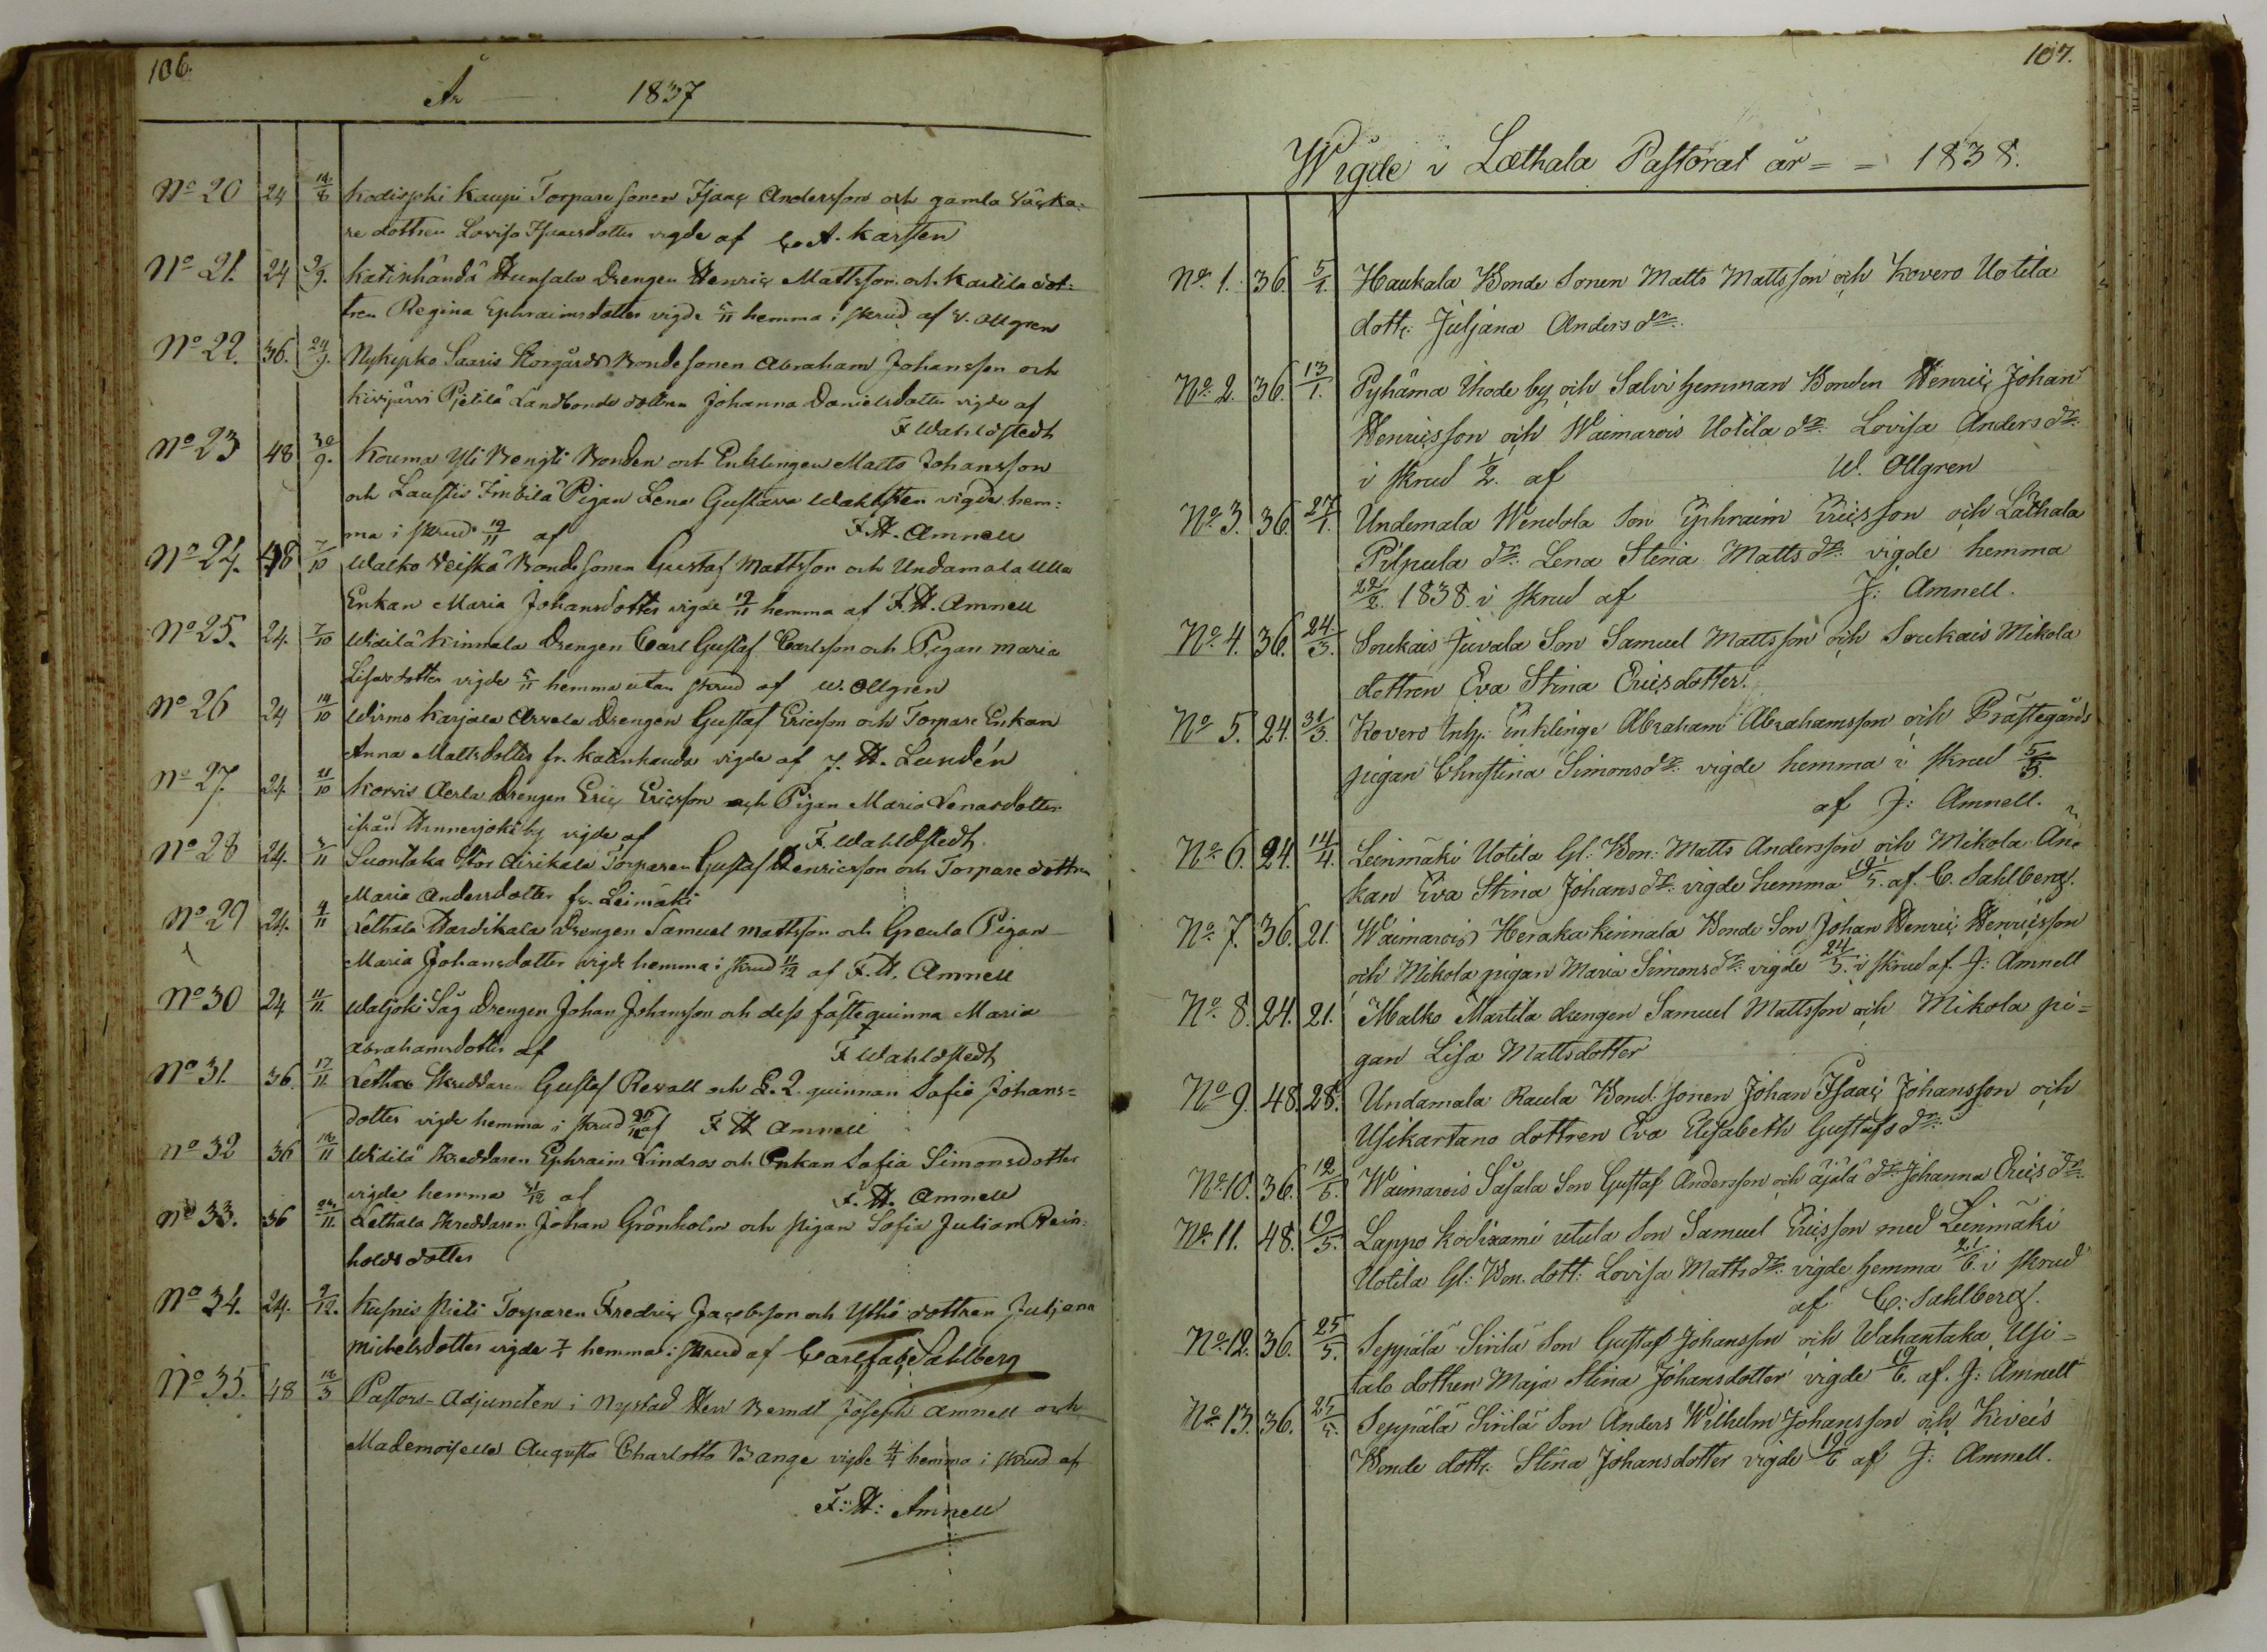 106.
År 1837
No 20 24 14/8 Kodisjoki Kaupi Torpare sonen Isaac Andersson och gamla
re dottren Lovisa Isacsdotter vigde af A. Karsten
No 21. 24 9/9. Katinhändä Hunsala Drengen Henric Mattsson och Kaukila dot:
tren Regina Ephraimsdotter vigde 5/11 hemma i skrud af W. Ollgren
No 22. 36. 24/9. Nykyrko Saaris Storgårds Bondesonen Abraham Johansson och
Kivijärvi Pietilä Landbonde dottren Johanna Danielsdotter vigde af
F Wahlstedt
No 23 48 30/9. Kouma Yli Bengti Bonden och Enklingen Matts Johansson
och Laustis Inbilä Pigan Lena Gustava Wahlsten vigde hem:
ma i skrud 19/11 af F. H. Amnell
No 24. 48 7/10 Walko Veiskä Bondesonen Gustaf Mattsson och Undamala Ulla
Enkan Maria Johansdotter vigde 19/11 hemma af F. H. Amnell
No 25. 24. 7/10 Widilä Kinnala Drengen Carl Gustaf Carlsson och Pigan Maria
Lisasdotter vigde 5/11 hemma utan skrud af W. Ollgren
No 26 24 14/10 Wirmo Karjala Arvela Drengen Gustaf Ericsson och Torpare Enkan
Anna Mattsdotter fr. Katinhända vigde af J. H. Lundén
No 27. 24. 21/10 Korvis Aerla Drengen Eric Ericsson och Pigan Maria Lenasdotter
ifrån Hinnerjoki by vigde af F. Wahlstedt
No 28 24. /11 Suontaka Stor Airikala Torparen Gustaf Henricsson och Torpare dottren
Maria Andersdotter fr. Leimäki
No 29 24. 4/11 Lethala Hardikala Drengen Samuel Mattsson och Greula Pigan
Maria Johansdotter vigde hemma i skrud 11/12 af F. H. Amnell
No 30 24 11/11. Waljoki Såg Drengen Johan Johansson och dess fästequinna Maria
Abrahamsdotter af F Wahlstedt
No 31. 36. 17/11. Lethala Skreddaren Gustaf Rewall och L. Q. quinnan Sofia Johans=
dotter vigde hemma i skrud af F H Amnell
No 32 36 18/11 Widilä Skreddaren Ephraim Lindros och Enkan Sofia Simonsdotter
vigde hemma 31/12 af F. H. Amnell
No 33. 36 /11. Lethala Skreddaren Johan Grönholm och pigan Sofia Juliana Rein:
holdsdotter
No 34. 24. 9/12. Kusnis Pieti Torparen Fredric Jacobsson och Ythö dottren Juljana
Michelsdotter vigde 7/1 hemma i skrud af Carl Sahlberg
No 35. 48 18/3 Pastors-Adjuncten i Nystad Herr Berndt Joseph Amnell och
Mademoiselle Augusta Charlotta Bange vigde 4/4 hemma i skrud af
F: H: Amnell
107.
Wigde i Læthala Pastorat år = = 1838.
No 1. 36. 5/1. Haukala Bonde Sonen Matts Mattsson och Kovero Uotila
dott: Juljana Anders dr.
No 2. 36. 13/1. Pyhäma Ihode by och Salvi hemman Bonden Henric Johan
Henricsson och Waimarois Uotila dr. Lovisa Anders dr.
i skrud 1/2. af W. Ollgren
No 3. 36 27/1. Undemala Wendola Son Ephraim Ericsson och Läthala
Pilpula dr. Lena Stina Matts dr. vigde hemma
22/2. 1838. i skrud af J: Amnell.
No 4. 36. 24./3. Soukais Juvala Son Samuel Mattsson och Soukais Mikola
dottren Eva Stina Ericsdotter.
No 5. 24. 31/3. Kovero Inh: Enklinge Abraham Abrahamsson och Prästegårds
pigan Christina Simons dr. vigde hemma i skrud 5/5.
af J: Amnell.
No 6. 24. 14/4. Leinmäki Uotila Gl: Bon: Matts Andersson och Mikola Än=
kan Eva Stina Johans dr. vigde hemma 19/5. af C. Sahlberg.
No 7. 36. 21. Waimarois Heraka kinnala Bonde Son Johan Henric Henricsson
och Mikola pigan Maria Simons dr. vigde 24/5. i skrud af J: Amnell
No 8. 24. 21. Malko Martila drengen Samuel Mattsson och Mikola pi=
gan Lisa Mattsdotter
No 9. 48. 28. Undamala Raula Bond: Sonen Johan Isaac Johansson och
Usikartano dottren Eva Elisabeth Gustafs dr.
No 10. 36. 12/5. Waimarois Säsala Son Gustaf Andersson och äjälä dr. Johanna Erics dr.
No 11. 48. 19/5. Lappo Kodixami utula Son Samuel Ericsson med Leinmäki
Uotila Gl: Bon. dott: Lovisa Matts dr. vigde hemma 21/6. i skrud
af C: Sahlberg.
No 12. 36. 25/5. Seppälä Sirilä Son Gustaf Johansson och Wahantaka Usi=
talo dottren Maja Stina Johansdotter vigde 19/6. af. J: Amnell
No 13. 36. 25/5. Seppälä Sirilä Son Anders Wilhelm Johansson och Kiveis
Bonde dott: Stina Johansdotter vigde 19/6 af J: Amnell.